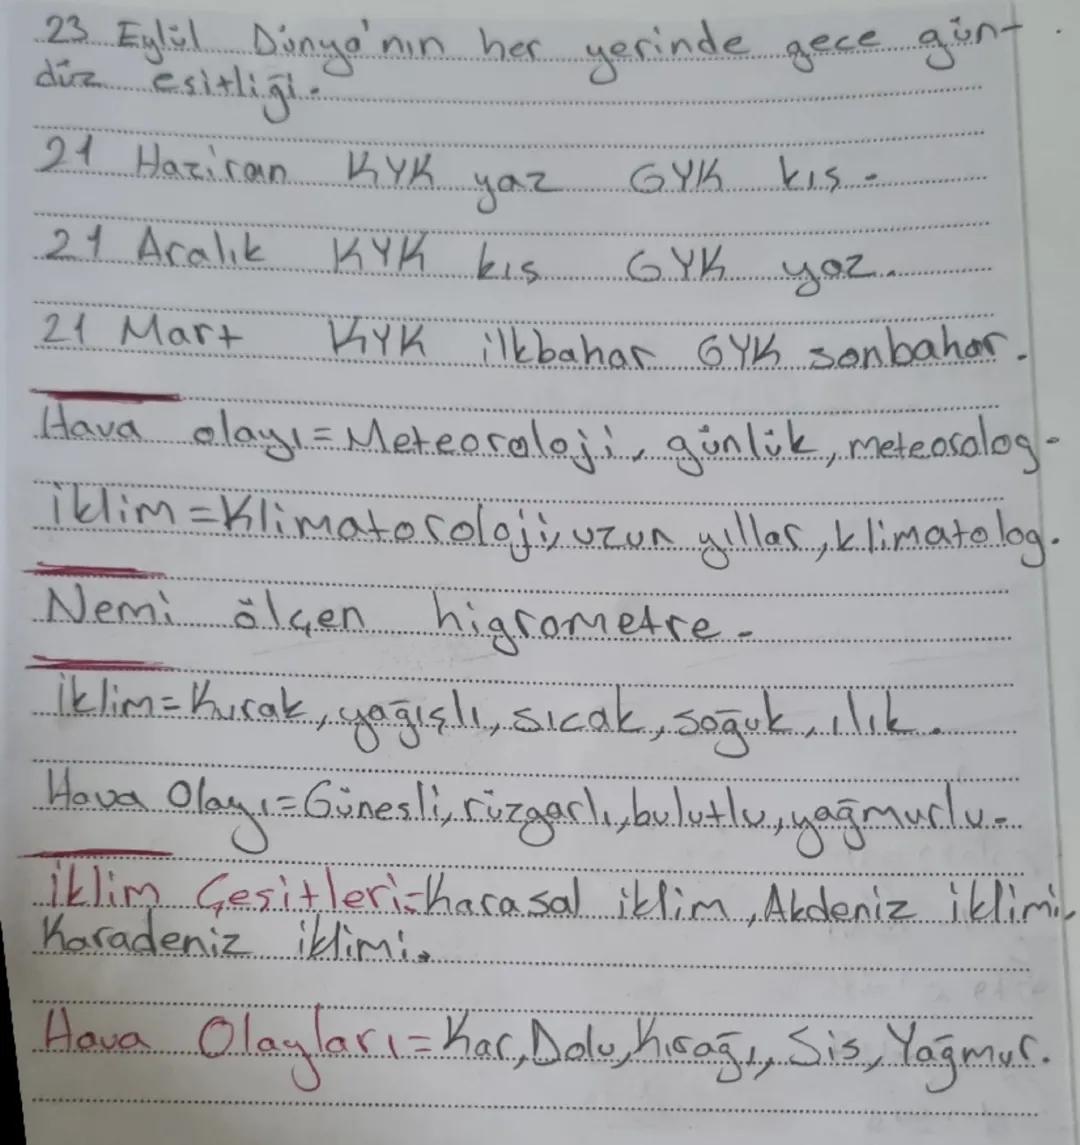 23 Eylül Dünya'nın her yerinde gece gün-
düz esitliği.
21 Haziran KYK yaz GYK kıs.
21 Aralık KYK kıs GYK yaz.
21 Mart KYK ilkbahar GYK sonbahar.
Hava olayı=Meteoroloji, günlük, meteorolog.
İklim=Klimatoroloji, uzun yıllar, klimatolog.
Nemi ölçen higrometre.
İklim=Kurak, yağışlı, sıcak, soğuk, ılık.
Hava Olayı=Günesli, rüzgarlı, bulutlu, yağmurlu.
İklim Çesitleri=Karasal iklim, Akdeniz iklimi,
Karadeniz iklimi.
Hava Olayları=Kar, Dolu, Kırağı, Sis, Yağmur.